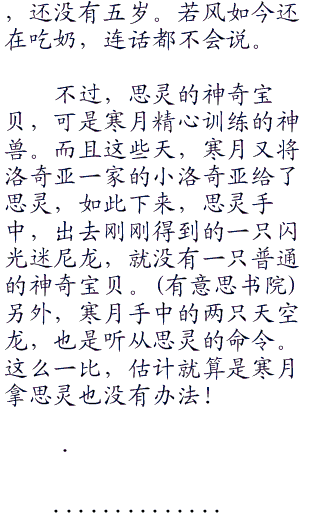 ，还没有五岁。若风如今还
在吃奶，连话都不会说。
不过，思灵的神奇宝
贝，可是寒月精心训练的神
兽。而且这些天，寒月又将
洛奇亚一家的小洛奇亚给了
思灵，如此下来，思灵手
中，出去刚刚得到的一只闪
光迷尼龙，就没有一只普通
的神奇宝贝。(有意思书院)
另外，寒月手中的两只天空
龙，也是听从思灵的命令。
这么一比，估计就算是寒月
拿思灵也没有办法！
.
..............